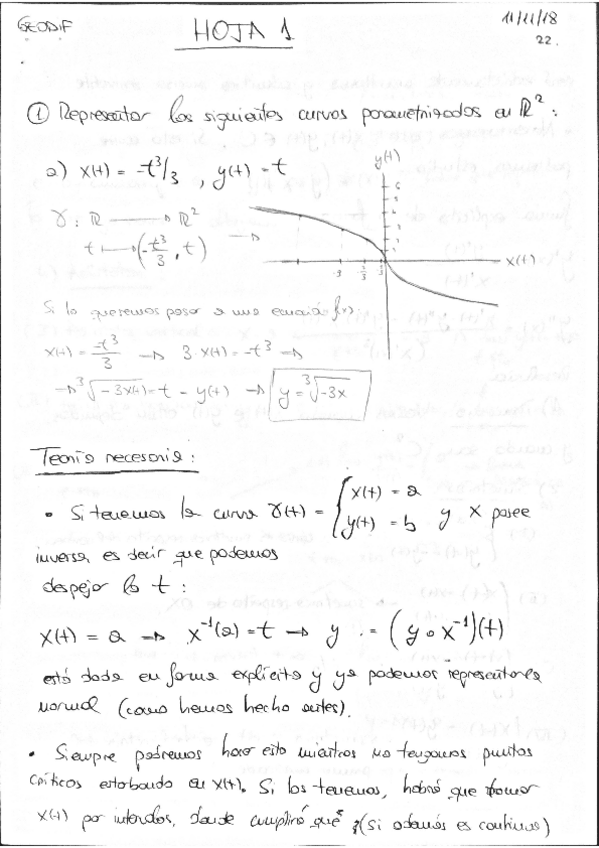 GEODIF
HOJA 1
11/11/18
22.
① Representar las siguientes curvas parametrizadas en ℝ²:
a) x(t) = -t³/3 , y(t) = t
γ : ℝ → ℝ²
t ↦ (-t³/3 , t)
y(t)
x(t)
Si lo queremos pasar a una ecuación f(x),
x(t) = -t³/3 → 3·x(t) = -t³ →
→ ³√-3x(t) = t = y(t) → y = ³√-3x
Teoría necesaria:
• Si tenemos la curva γ(t) = { x(t) = a
y(t) = b y x posee
inversa, es decir que podemos
despejar la t :
x(t) = a → x⁻¹(a) = t → y := (y ∘ x⁻¹)(t)
está dada en forma explícita y ya podemos representarla
normal (como hemos hecho antes).
• Siempre podremos hacer esto mientras no tengamos puntos
críticos estorbando en x(t). Si los tenemos, habrá que tomar
x(t) por intervalos, donde cumplirá que (si además es continua)